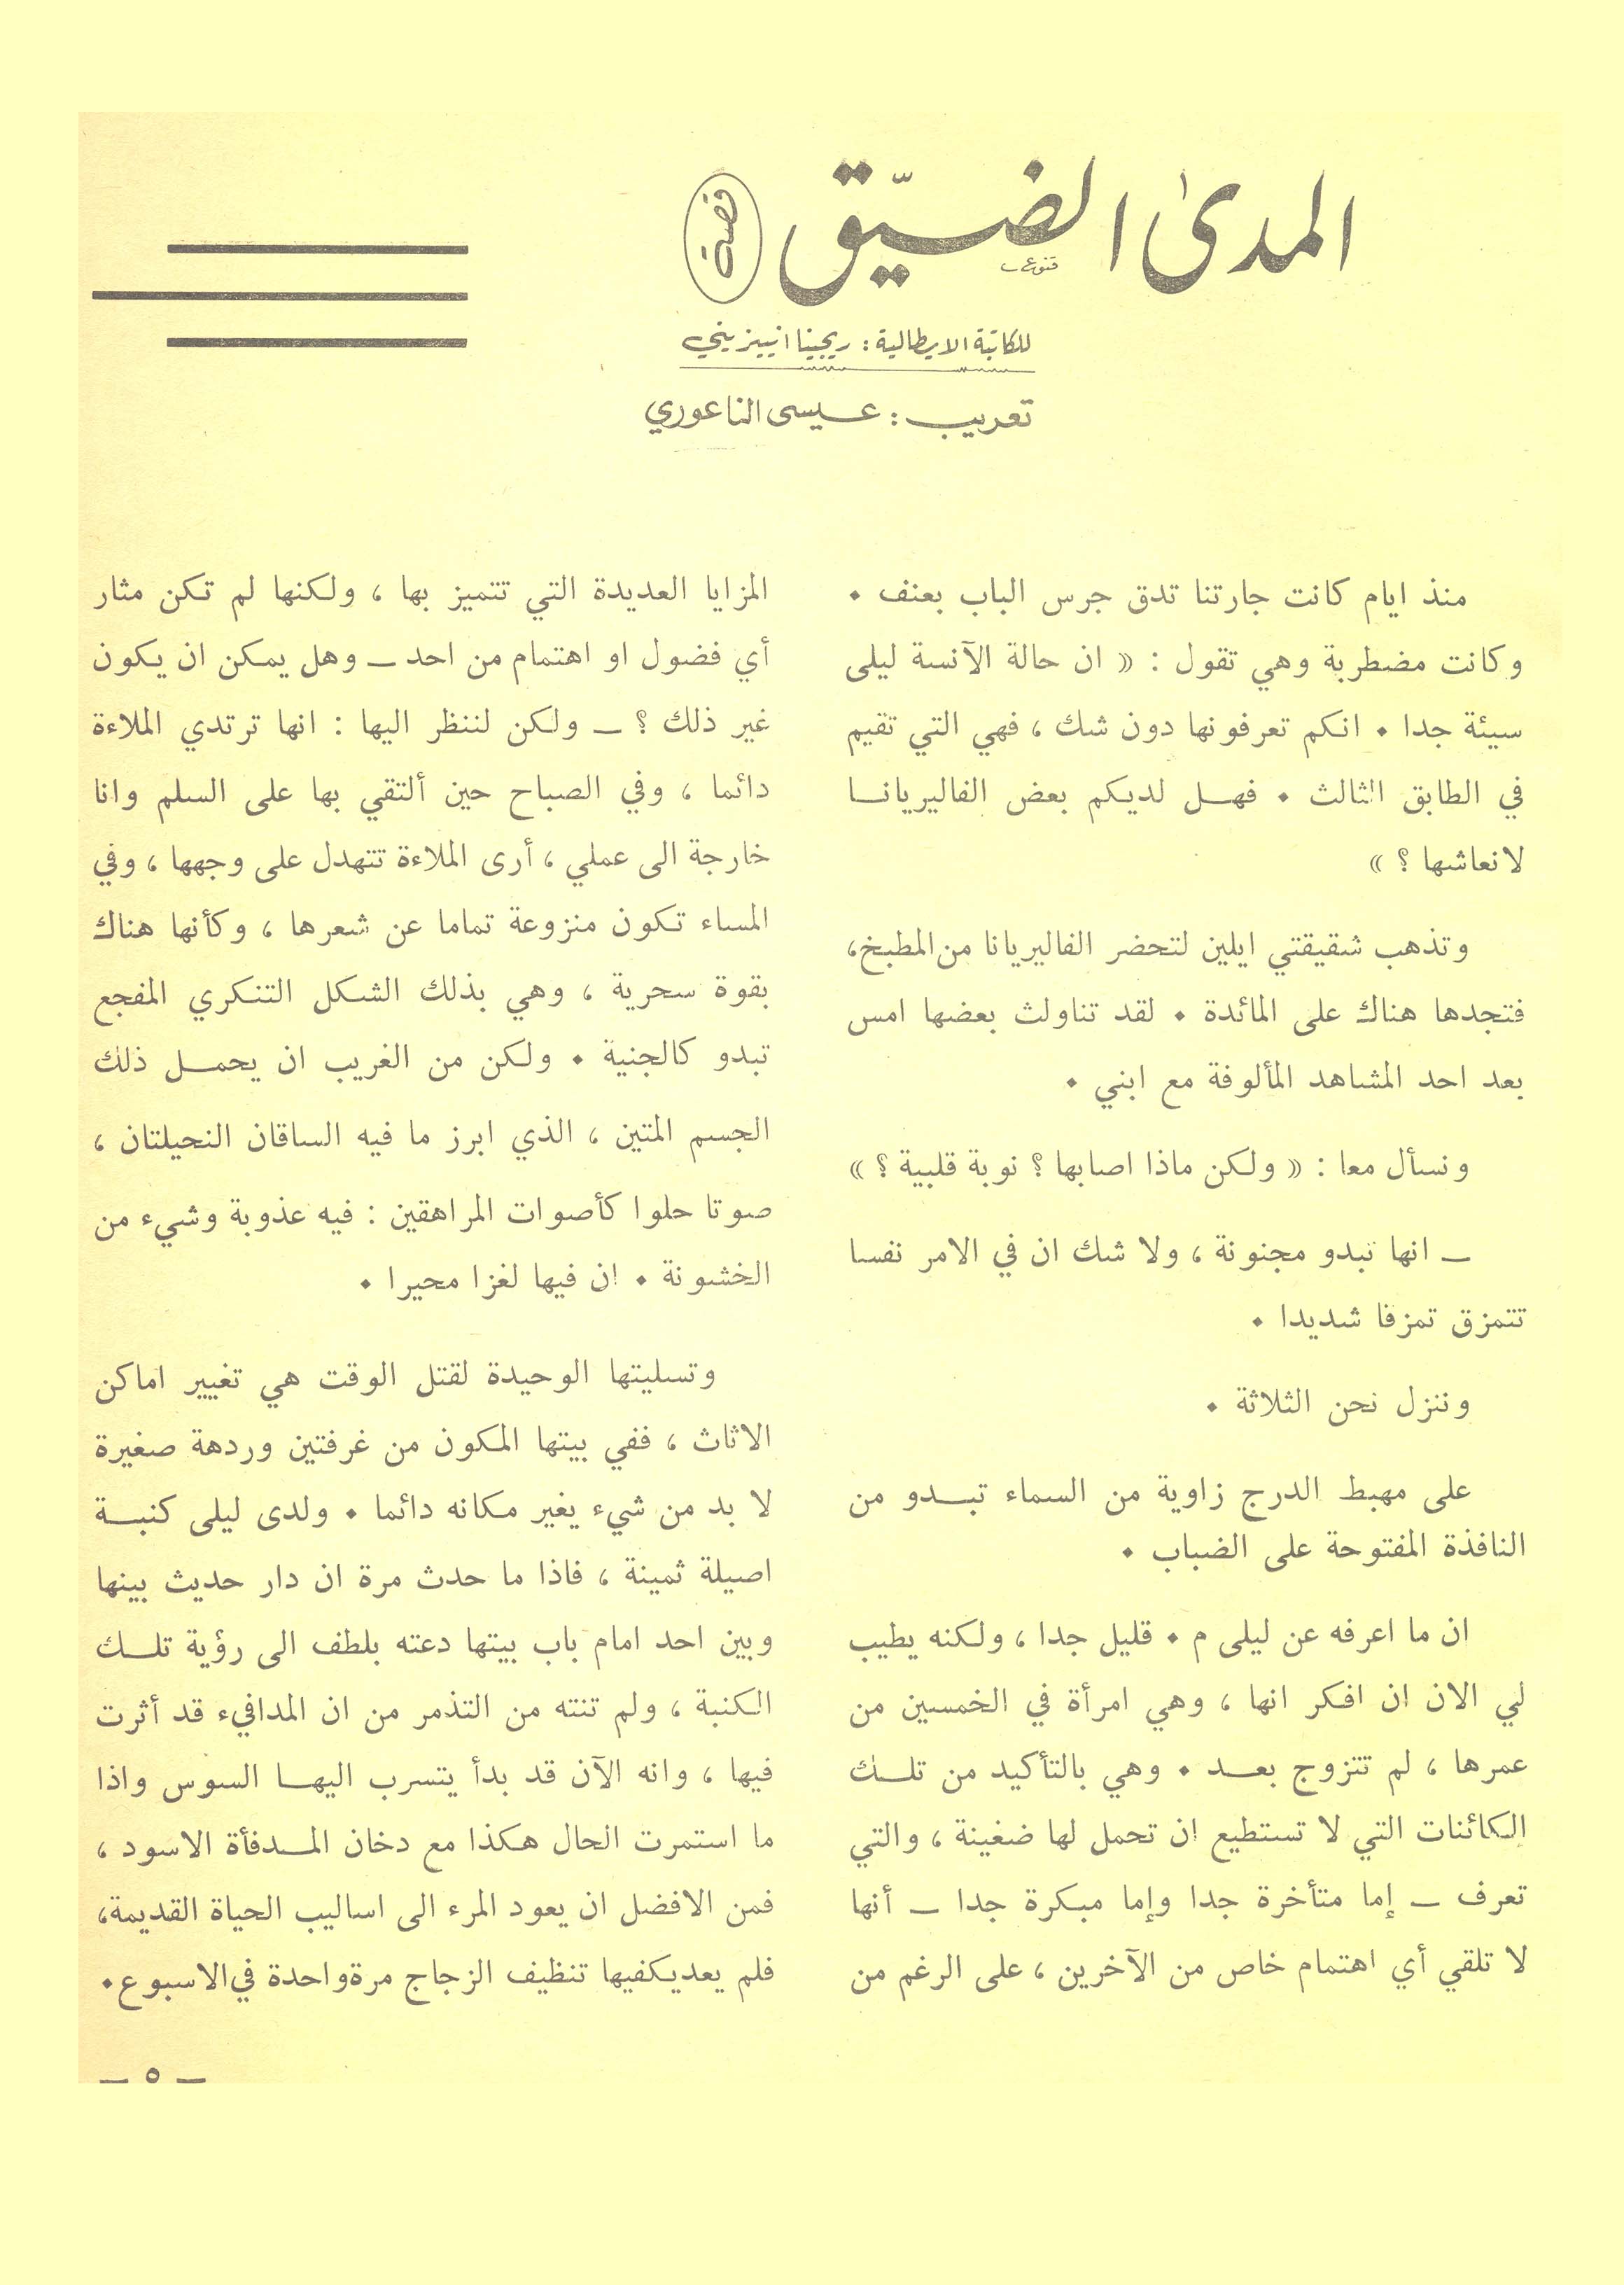 المدى الضيّق
قصة
للكاتبة الايطالية : ريجينا انييزيني
تعريب : عيسى الناعوري
منذ ايام كانت جارتنا تدق جرس الباب بعنف .
وكانت مضطربة وهي تقول : « ان حالة الآنسة ليلى
سيئة جدا . انكم تعرفونها دون شك ، فهي التي تقيم
في الطابق الثالث . فهل لديكم بعض الفاليريانا
لانعاشها ؟ »
وتذهب شقيقتي ايلين لتحضر الفاليريانا من المطبخ،
فتجدها هناك على المائدة . لقد تناولت بعضها امس
بعد احد المشاهد المألوفة مع ابني .
ونسأل معا : « ولكن ماذا اصابها ؟ نوبة قلبية ؟ »
ــ انها تبدو مجنونة ، ولا شك ان في الامر نفسا
تتمزق تمزقا شديدا .
وننزل نحن الثلاثة .
على مهبط الدرج زاوية من السماء تبدو من
النافذة المفتوحة على الضباب .
ان ما اعرفه عن ليلى م . قليل جدا ، ولكنه يطيب
لي الان ان افكر انها ، وهي امرأة في الخمسين من
عمرها ، لم تتزوج بعد . وهي بالتأكيد من تلك
الكائنات التي لا تستطيع ان تحمل لها ضغينة ، والتي
تعرف ــ إما متأخرة جدا وإما مبكرة جدا ــ أنها
لا تلقي أي اهتمام خاص من الآخرين ، على الرغم من
المزايا العديدة التي تتميز بها ، ولكنها لم تكن مثار
أي فضول او اهتمام من احد ــ وهل يمكن ان يكون
غير ذلك ؟ ــ ولكن لننظر اليها : انها ترتدي الملاءة
دائما ، وفي الصباح حين ألتقي بها على السلم وانا
خارجة الى عملي ، أرى الملاءة تتهدل على وجهها ، وفي
المساء تكون منزوعة تماما عن شعرها ، وكأنها هناك
بقوة سحرية ، وهي بذلك الشكل التنكري المفجع
تبدو كالجنية . ولكن من الغريب ان يحمل ذلك
الجسم المتين ، الذي ابرز ما فيه الساقان النحيلتان ،
صوتا حلوا كأصوات المراهقين : فيه عذوبة وشيء من
الخشونة . ان فيها لغزا محيرا .
وتسليتها الوحيدة لقتل الوقت هي تغيير اماكن
الاثاث ، ففي بيتها المكون من غرفتين وردهة صغيرة
لا بد من شيء يغير مكانه دائما . ولدى ليلى كنبة
اصيلة ثمينة ، فاذا ما حدث مرة ان دار حديث بينها
وبين احد امام باب بيتها دعته بلطف الى رؤية تلك
الكنبة ، ولم تنته من التذمر من ان المدافيء قد أثرت
فيها ، وانه الآن قد بدأ يتسرب اليها السوس واذا
ما استمرت الحال هكذا مع دخان المدفأة الاسود ،
فمن الافضل ان يعود المرء الى اساليب الحياة القديمة،
فلم يعد يكفيها تنظيف الزجاج مرة واحدة في الاسبوع .
ــ ٥ ــ